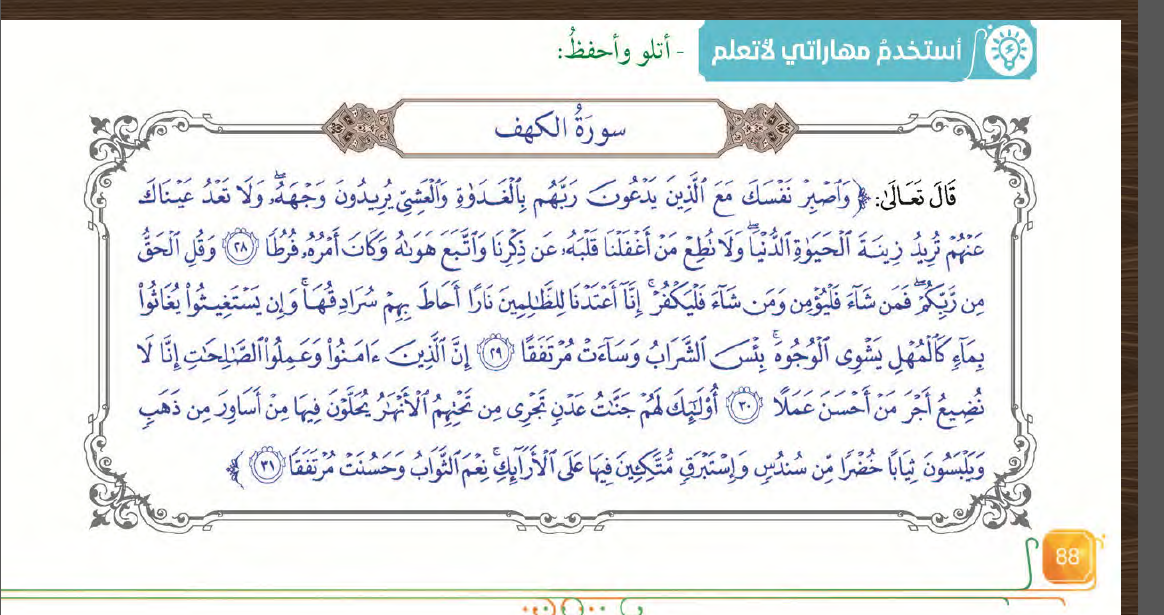 أستخدمُ مهاراتي لأتعلم
- أتلو وأحفظُ:
سورَةُ الكهف
قَالَ تَعَالَىٰ: ﴿ وَٱصۡبِرۡ نَفۡسَكَ مَعَ ٱلَّذِينَ يَدۡعُونَ رَبَّهُم بِٱلۡغَدَوٰةِ وَٱلۡعَشِيِّ يُرِيدُونَ وَجۡهَهُۥۖ وَلَا تَعۡدُ عَيۡنَاكَ
عَنۡهُمۡ تُرِيدُ زِينَةَ ٱلۡحَيَوٰةِ ٱلدُّنۡيَاۖ وَلَا تُطِعۡ مَنۡ أَغۡفَلۡنَا قَلۡبَهُۥ عَن ذِكۡرِنَا وَٱتَّبَعَ هَوَىٰهُ وَكَانَ أَمۡرُهُۥ فُرُطٗا ٢٨ وَقُلِ ٱلۡحَقُّ
مِن رَّبِّكُمۡۖ فَمَن شَآءَ فَلۡيُؤۡمِن وَمَن شَآءَ فَلۡيَكۡفُرۡۚ إِنَّآ أَعۡتَدۡنَا لِلظَّٰلِمِينَ نَارًا أَحَاطَ بِهِمۡ سُرَادِقُهَاۚ وَإِن يَسۡتَغِيثُواْ يُغَاثُواْ
بِمَآءٖ كَٱلۡمُهۡلِ يَشۡوِي ٱلۡوُجُوهَۚ بِئۡسَ ٱلشَّرَابُ وَسَآءَتۡ مُرۡتَفَقًا ٢٩ إِنَّ ٱلَّذِينَ ءَامَنُواْ وَعَمِلُواْ ٱلصَّٰلِحَٰتِ إِنَّا لَا
نُضِيعُ أَجۡرَ مَنۡ أَحۡسَنَ عَمَلًا ٣٠ أُوْلَٰٓئِكَ لَهُمۡ جَنَّٰتُ عَدۡنٖ تَجۡرِي مِن تَحۡتِهِمُ ٱلۡأَنۡهَٰرُ يُحَلَّوۡنَ فِيهَا مِنۡ أَسَاوِرَ مِن ذَهَبٖ
وَيَلۡبَسُونَ ثِيَابًا خُضۡرٗا مِّن سُندُسٖ وَإِسۡتَبۡرَقٖ مُّتَّكِـِٔينَ فِيهَا عَلَى ٱلۡأَرَآئِكِۚ نِعۡمَ ٱلثَّوَابُ وَحَسُنَتۡ مُرۡتَفَقٗا ٣١ ﴾
88